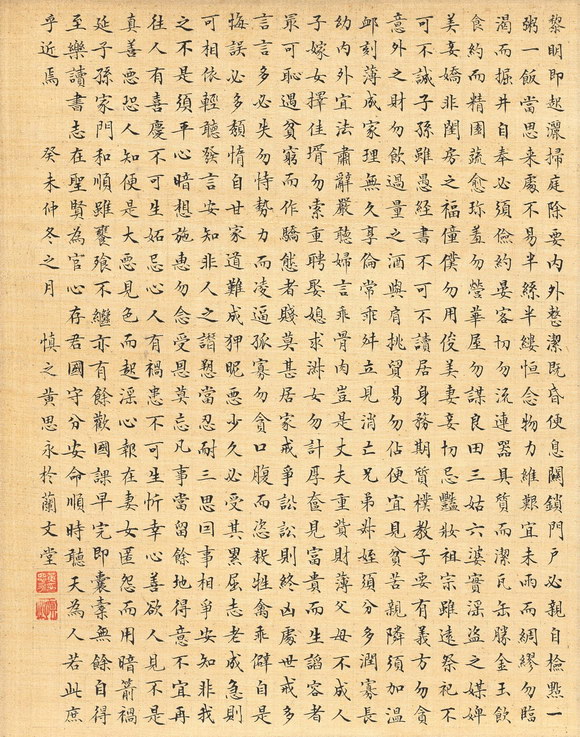 黎明即起灑掃庭除要內外整潔既昏便息關鎖門戶必親自檢點一
粥一飯當思来處不易半絲半縷恒念物力維艱宜未雨而綢繆勿臨
渴而掘井自奉必須儉約宴客切勿流連器具質而潔瓦缶勝金玉飲
食約而精園蔬愈珍羞勿營華屋勿謀良田三姑六婆實淫盜之媒婢
美妾嬌非閨房之福僮僕勿用俊美妻妾切忌豔妝祖宗雖遠祭祀不
可不誠子孫雖愚經書不可不讀居身務期質樸教子要有義方勿貪
意外之財勿飲過量之酒與肩挑貿易勿佔便宜見貧苦親隣須加溫
卹刻薄成家理無久享倫常乖舛立見消亡兄弟叔姪須分多潤寡長
幼內外宜法肅辭嚴聽婦言乖骨肉豈是丈夫重貲財薄父母不成人
子嫁女擇佳壻勿索重聘娶媳求淑女勿計厚奩見富貴而生諂容者
最可恥遇貧窮而作驕態者賤莫甚居家戒爭訟訟則終凶處世戒多
言言多必失勿恃勢力而凌逼孤寡勿貪口腹而恣殺牲禽乖僻自是
悔誤必多頹惰自甘家道難成狎昵惡少久必受其累屈志老成急則
可相依輕聽發言安知非人之譖愬當忍耐三思因事相爭安知非我
之不是須平心暗想施惠勿念受恩莫忘凡事當留餘地得意不宜再
往人有喜慶不可生妬忌心人有禍患不可生忻幸心善欲人見不是
真善惡恐人知便是大惡見色而起淫心報在妻女匿怨而用暗箭禍
延子孫家門和順雖饔飧不繼亦有餘歡國課早完即囊橐無餘自得
至樂讀書志在聖賢為官心存君國守分安命順時聽天為人若此庶
乎近焉 癸未仲冬之月 慎之黃思永於蘭文堂